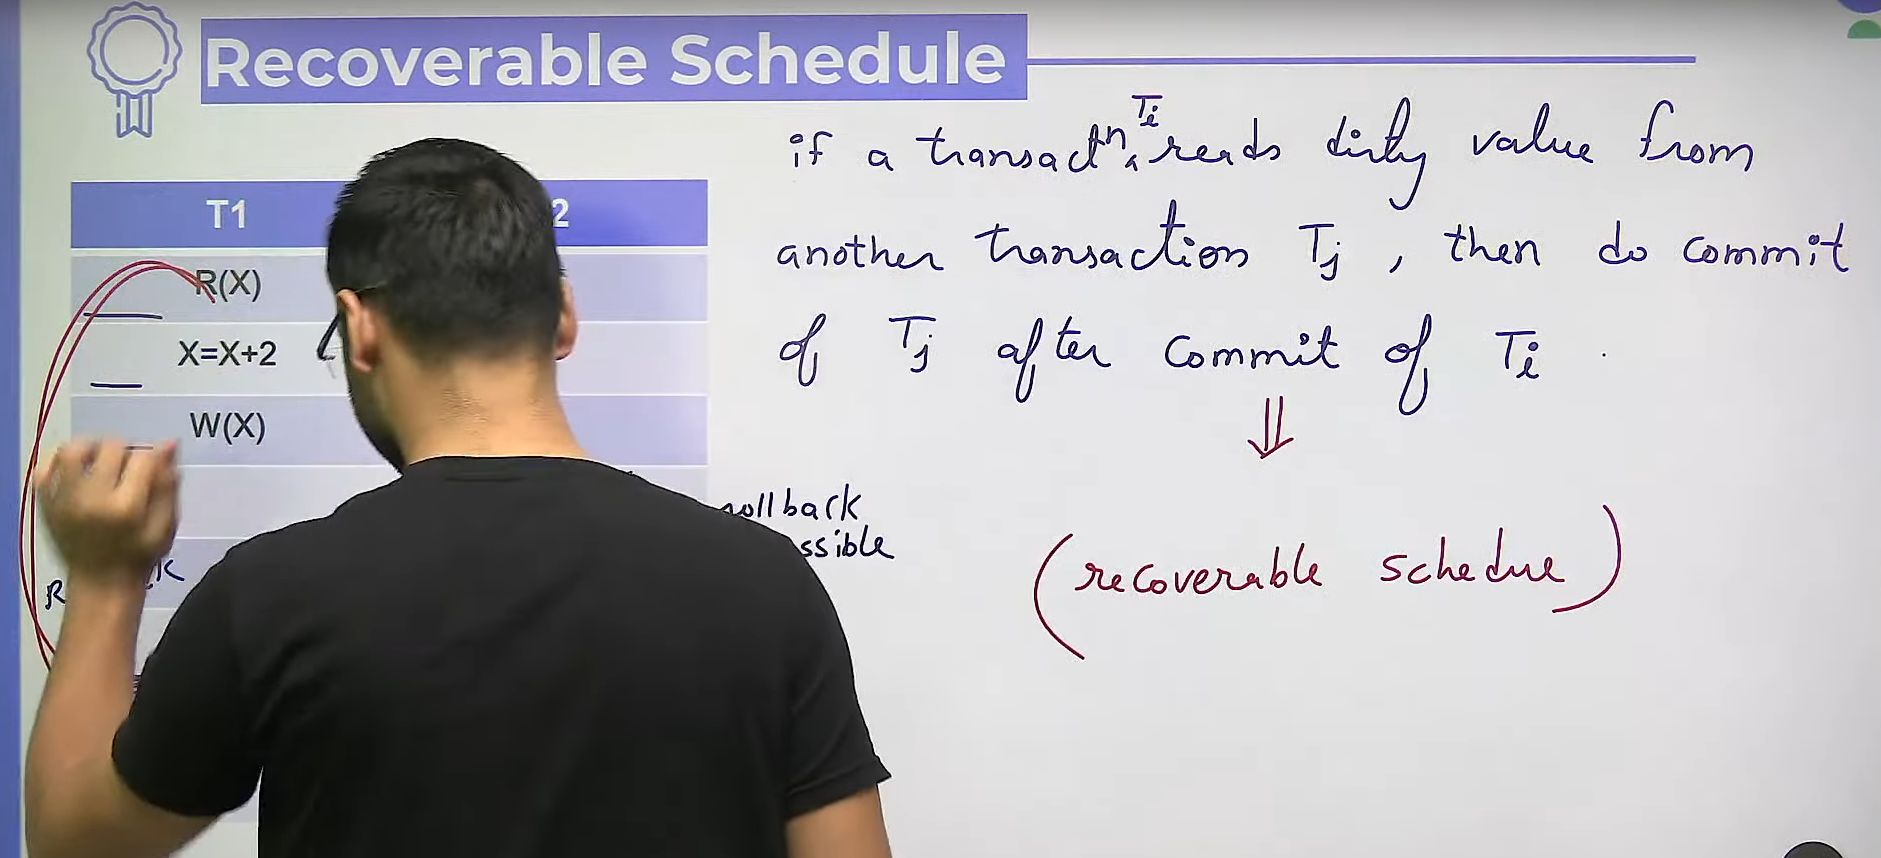 Recoverable Schedule
T1
2
R(X)
X=X+2
W(X)
if a transactn Ti reads dirty value from
another transaction Tj, then do commit
of Tj after commit of Ti.
(recoverable schedule)